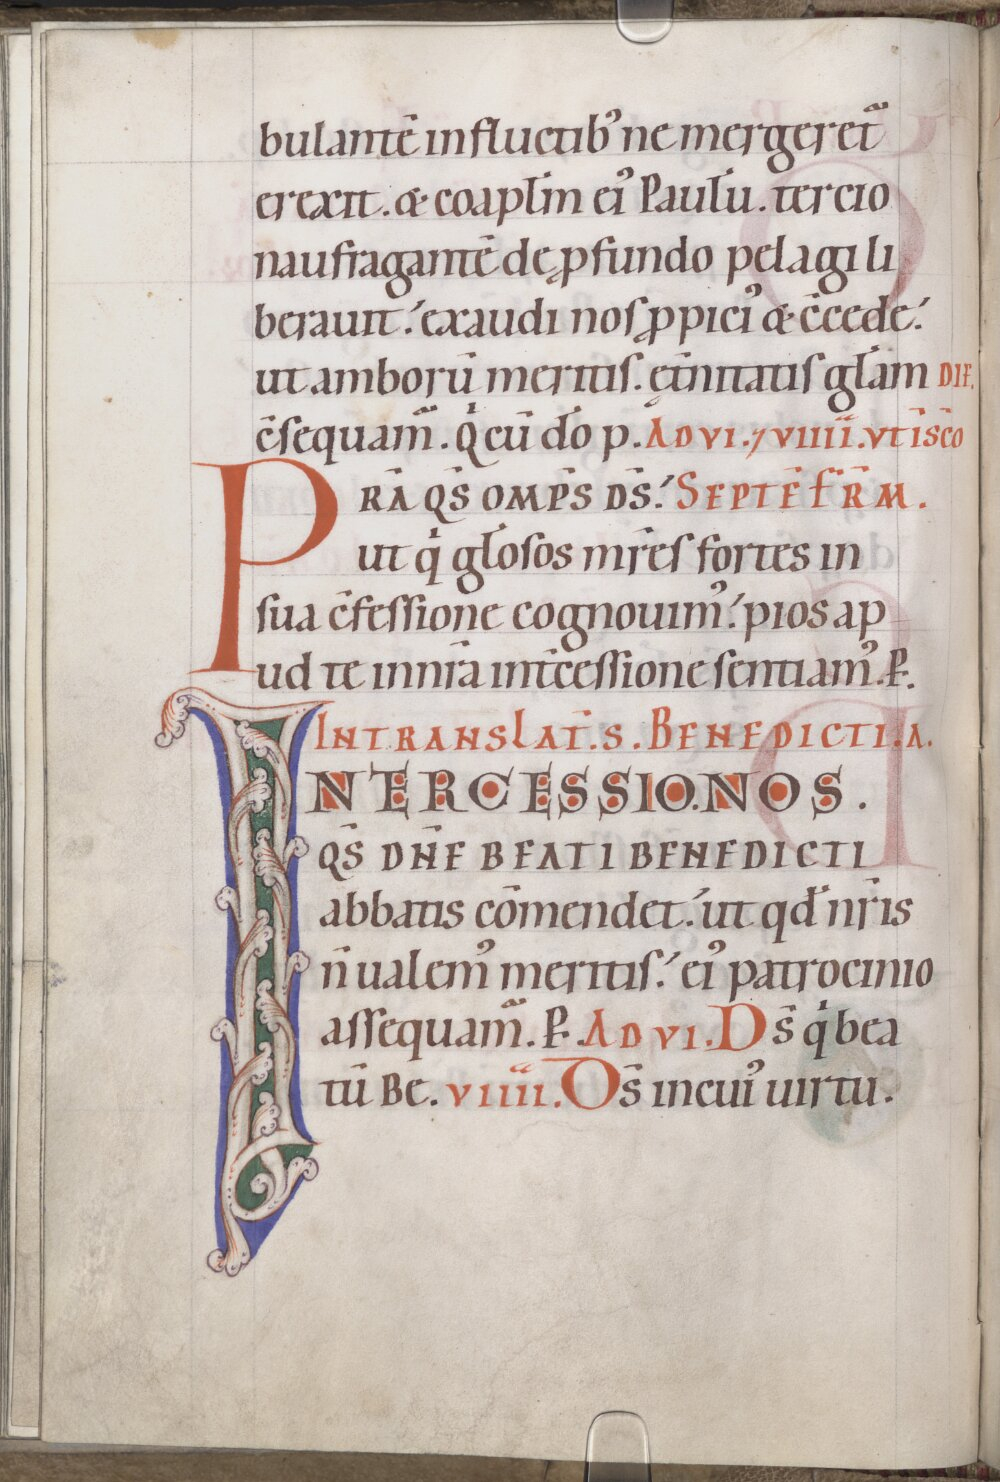 bulantē in fluctib᾿ ne mergeretᷓ
erexit . & coaplīm ei᾿ Paulū . tercio
naufragantē de ꝓfundo pelagi li
berauit ;᾿ exaudi nos ꝓpici᾿ & c̄cede ;᾿
ut amborū meritis . ęt̄nitatis gl̄am DIE.
c̄sequamᷓ . Qͥ cū d̄o p . AD VI . ⁊ VIIII . VT ĪSC̄O
PRĀ QS̄ OMP̄S DS̄ ;᾿ SEPTĒ FR̄M .
ut qͥ gl̄osos mr̄es fortes in
sua c̄fessione cognouim᾿ ;᾿ pios ap
ud te in nr̄a int̄cessione sentiam᾿ . P̵ .
IN TRANSLAT̄ . S . BENEDICTI . A .
INTERCESSIO . NOS .
QS̄ DN̄E BEATI BENEDICTI
abbatis cōmendet ;᾿ ut qd̄ nr̄is
n̄ ualem᾿ meritis ;᾿ ei᾿ patrocinio
assequamᷓ . P̵ . AD VI . DS̄ qͥ bea
tū BE . VIIII . DS̄ in cui᾿ uirtu .